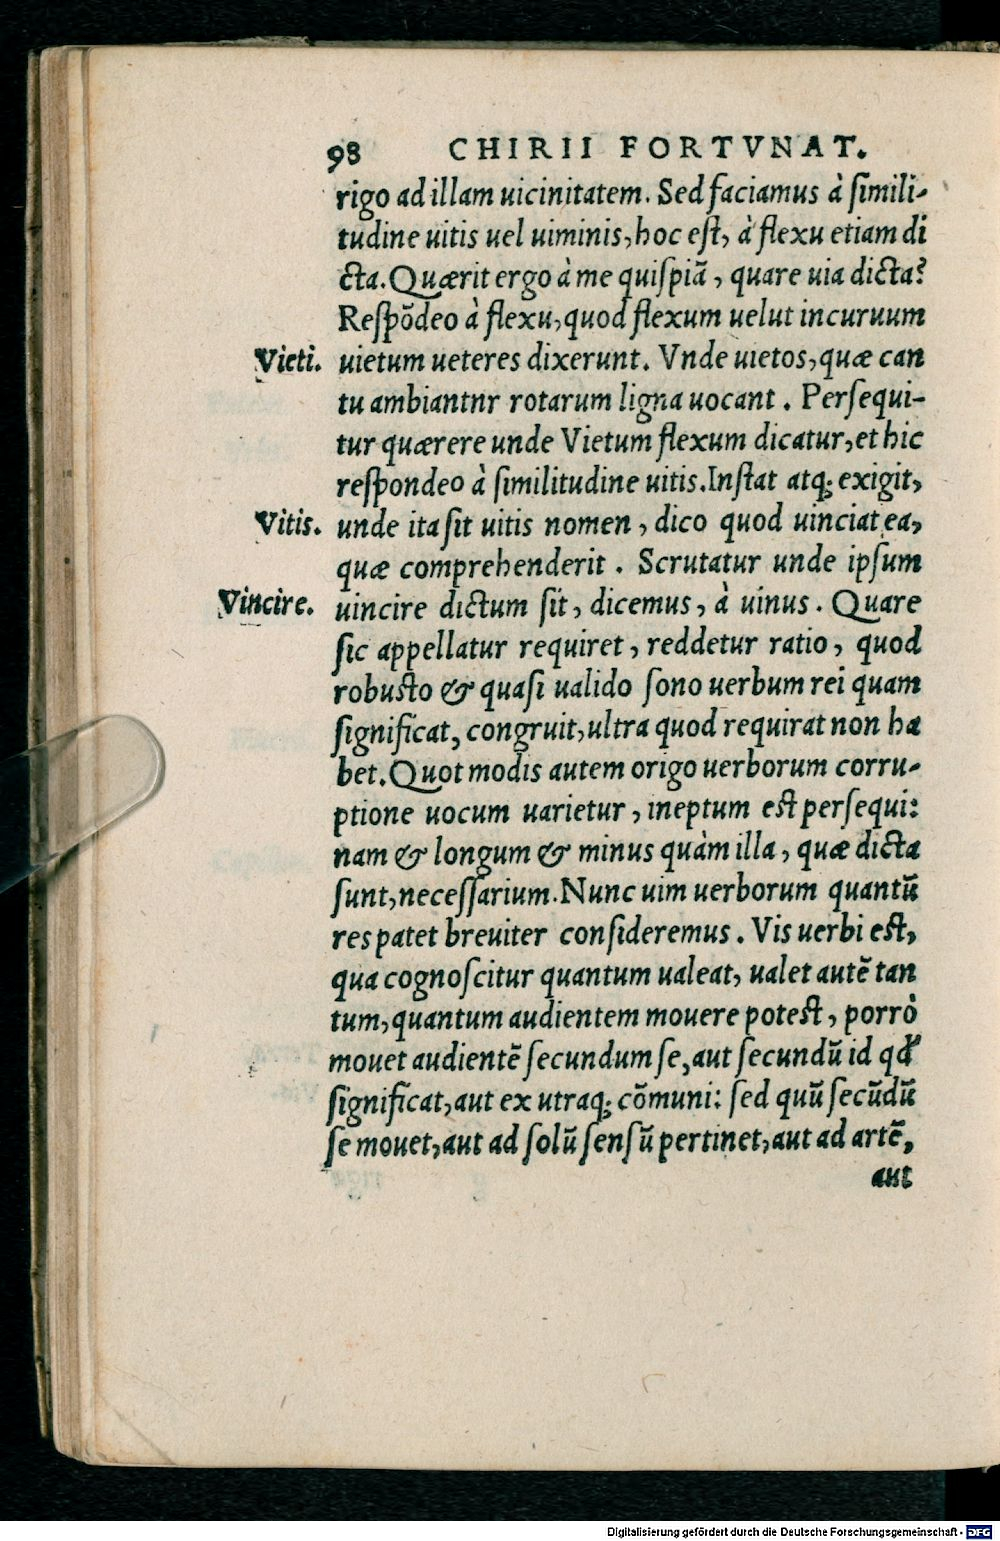 98 CHIRII FORTVNAT.
rigo ad illam uicinitatem. Sed faciamus à simili-
tudine uitis uel uiminis, hoc est, à flexu etiam di
cta. Quærit ergo à me quispiã, quare uia dicta?
Respõdeo à flexu, quod flexum uelut incuruum
Vieti. uietum ueteres dixerunt. Vnde uietos, quæ can
tu ambiantnr rotarum ligna uocant. Persequi-
tur quærere unde Vietum flexum dicatur, et hic
respondeo à similitudine uitis. Instat atq; exigit,
Vitis. unde ita sit uitis nomen, dico quod uinciat ea,
quæ comprehenderit. Scrutatur unde ipsum
Vincire. uincire dictum sit, dicemus, à uinus. Quare
sic appellatur requiret, reddetur ratio, quod
robusto & quasi ualido sono uerbum rei quam
significat, congruit, ultra quod requirat non ha
bet. Quot modis autem origo uerborum corru-
ptione uocum uarietur, ineptum est persequi:
nam & longum & minus quàm illa, quæ dicta
sunt, necessarium. Nunc uim uerborum quantũ
res patet breuiter consideremus. Vis uerbi est,
qua cognoscitur quantum ualeat, ualet autẽ tan
tum, quantum audientem mouere potest, porrò
mouet audientẽ secundum se, aut secundũ id qđ
significat, aut ex utraq; cõmuni: sed quũ secũdũ
se mouet, aut ad solũ sensũ pertinet, aut ad artẽ,
aut
Digitalisierung gefördert durch die Deutsche Forschungsgemeinschaft - DFG